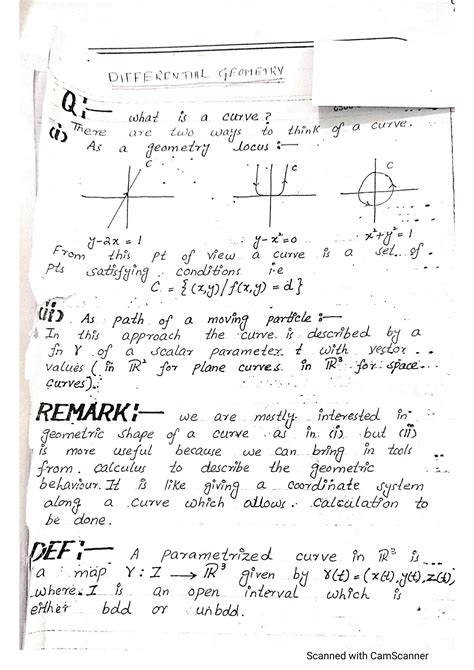 DIFFERENTIAL GEOMETRY
Q:— what is a curve?
(i) There are two ways to think of a curve.
As a geometry locus :—
C C C
y-2x = 1 y-x²=0 x²+y²=1
From this pt of view a curve is a set of
pts satisfying conditions i.e
C = {(x,y)/f(x,y) = d}
(ii) As path of a moving particle :—
In this approach the curve is described by a
fn γ of a scalar parameter t with vector
values (in ℝ² for plane curves in ℝ³ for space
curves).
REMARK:— we are mostly interested in
geometric shape of a curve as in (i) but (ii)
is more useful because we can bring in tools
from calculus to describe the geometric
behaviour. It is like giving a coordinate system
along a curve which allows calculation to
be done.
DEF:— A parametrized curve in ℝ³ is
a map γ: I → ℝ³ given by γ(t) = (x(t), y(t), z(t)),
where I is an open interval which is
either bdd or unbdd.
Scanned with CamScanner